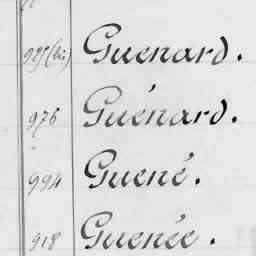 925 (bis) Guenard.
976 Guénard.
994 Guené.
918 Guenée.